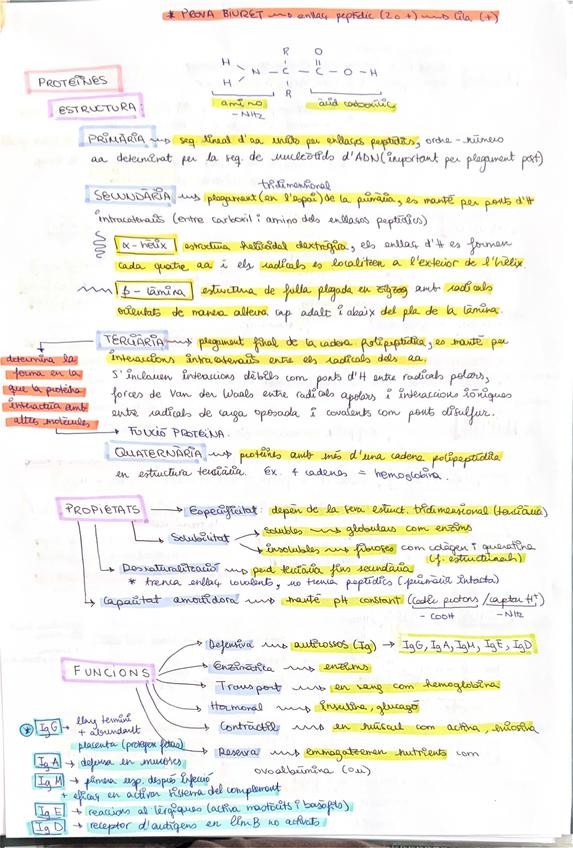 * PROVA BIURET → enllaç peptídic (2 o +) → lila (+)
R O
H
N - C - C - O - H
H
R
amino àcid carboxílic
- NH2
PROTEÏNES
ESTRUCTURA:
PRIMÀRIA → seq. lineal d'aa units per enllaços peptídics, ordre - número
aa determinat per la seq. de nucleòtids d'ADN (important per plegament post)
tridimensional
SECUNDÀRIA → plegament (en l'espai) de la primària, es manté per ponts d'H
intracatenaris (entre carboxil i amino dels enllaços peptídics)
α-hèlix estructura helicoïdal dextrogira, els enllaç d'H es formen
cada quatre aa i els radicals es localitzen a l'exterior de l'hèlix.
β-làmina estructura de fulla plegada en zigzag amb radicals
orientats de manera alterna cap adalt i abaix del pla de la làmina.
TERCIÀRIA → plegament final de la cadena polipeptídica, es manté per
interaccions intracatenaris entre els radicals dels aa.
S'inclouen interaccions dèbils com ponts d'H entre radicals polars,
forces de Van der Waals entre radicals apolars i interaccions iòniques
entre radicals de càrga oposada i covalents com ponts disulfur.
determina la
forma en la
que la proteïna
interactua amb
altres molècules
→ FUNCIÓ PROTEÏNA.
QUATERNÀRIA → proteïnes amb més d'una cadena polipeptídica
en estructura terciària. Ex. 4 cadenes = hemoglobina.
PROPIETATS → Especificitat: depèn de la seva estruct. tridimensional (terciària)
Solubilitat → solubles → globulars com enzims
→ insolubles → fibroses com colàgen i queratina
(f. estructural)
Desnaturalització → perd terciària fins secundària
* trenca enllaç covalents, no trenca peptídics (primària intacta)
Capacitat amortidora → manté pH constant (cedir protons / captar H⁺)
- COOH - NH2
FUNCIONS
Defensiva → anticossos (Ig) → IgG, IgA, IgM, IgE, IgD
Enzimàtica → enzims
Transport → en sang com hemoglobina
Hormonal → insulina, glucagó
Contràctil → en múscul com actina, miosina
Reserva → emmagatzemen nutrients com
ovoalbúmina (ou)
* IgG → llarg termini
+ abundant
placenta (protegeix fetus)
IgA → defensa en mucoses
IgM → primera resp. després infecció
+ eficaç en activar sistema del complement
IgE → reaccions al·lèrgiques (activa mastòcits i basòfils)
IgD → receptor d'antígens en limf. B no activats